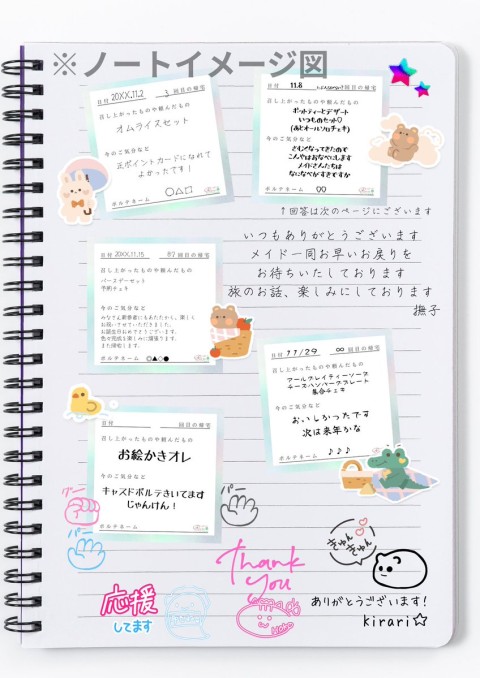 ※ノートイメージ図
日付 20XX.11.2 3 回目の帰宅
召し上がったものや頼んだもの
オムライスセット
今のご気分など
正ポイントカードになれて
よかったです!
ポルテネーム ○△□
日付 11.8 回目の帰宅
召し上がったものや頼んだもの
ポットティーとデザート
いつものセット♡
(あとオールソロチェキ)
今のご気分など
さむくなってきたので
こんやはおなべにします
メイドさんたちは
なになべがすきですか
ポルテネーム ○○
↑回答は次のページにございます
いつもありがとうございます
メイド一同お早いお戻りを
お待ちいたしております
旅のお話、楽しみにしております
撫子
日付 20XX.11.15 82 回目の帰宅
召し上がったものや頼んだもの
バースデーセット
予約チェキ
今のご気分など
お祝いさせていただきました。
お誕生日おめでとうございます。
また帰宅します。
ポルテネーム ○▲○●
日付 11/29 ∞ 回目の帰宅
召し上がったものや頼んだもの
アールグレイティーソーダ
チーズハンバーグプレート
集合チェキ
今のご気分など
おいしかったです
次は来年かな
ポルテネーム ♪♪♪
日付 回目の帰宅
召し上がったものや頼んだもの
お絵かきオレ
今のご気分など
キャスドポルテきいてます
じゃんけん!
ポルテネーム
グー
パー
パー
Thank
you
きゅん
きゅん
応援
してます
ありがとうございます!
kirari☆